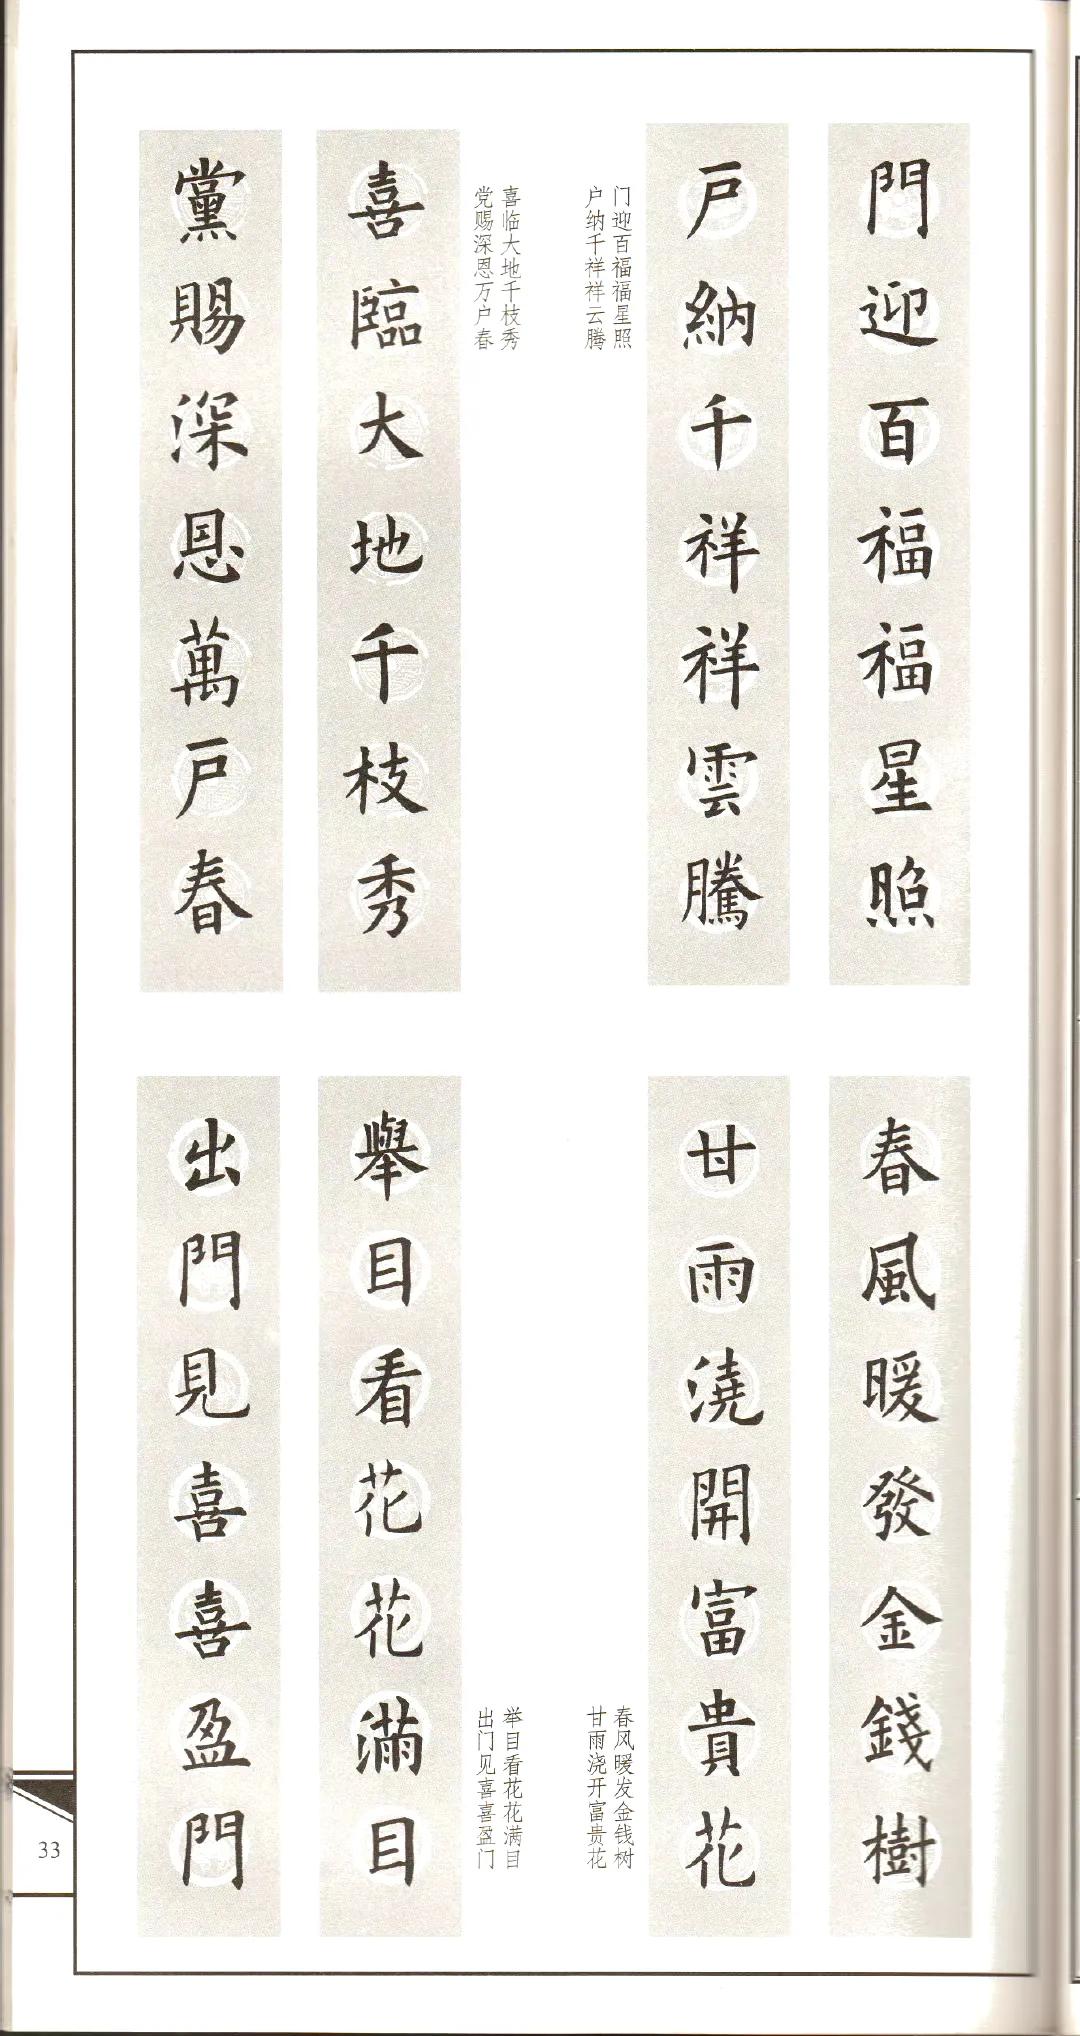 門迎百福福星照
戸納千祥祥雲騰
门迎百福福星照
户纳千祥祥云腾
喜臨大地千枝秀
黨賜深恩萬戸春
喜临大地千枝秀
党赐深恩万户春
春風暖發金錢樹
甘雨澆開富貴花
春风暖发金钱树
甘雨浇开富贵花
舉目看花花滿目
出門見喜喜盈門
举目看花花满目
出门见喜喜盈门
33